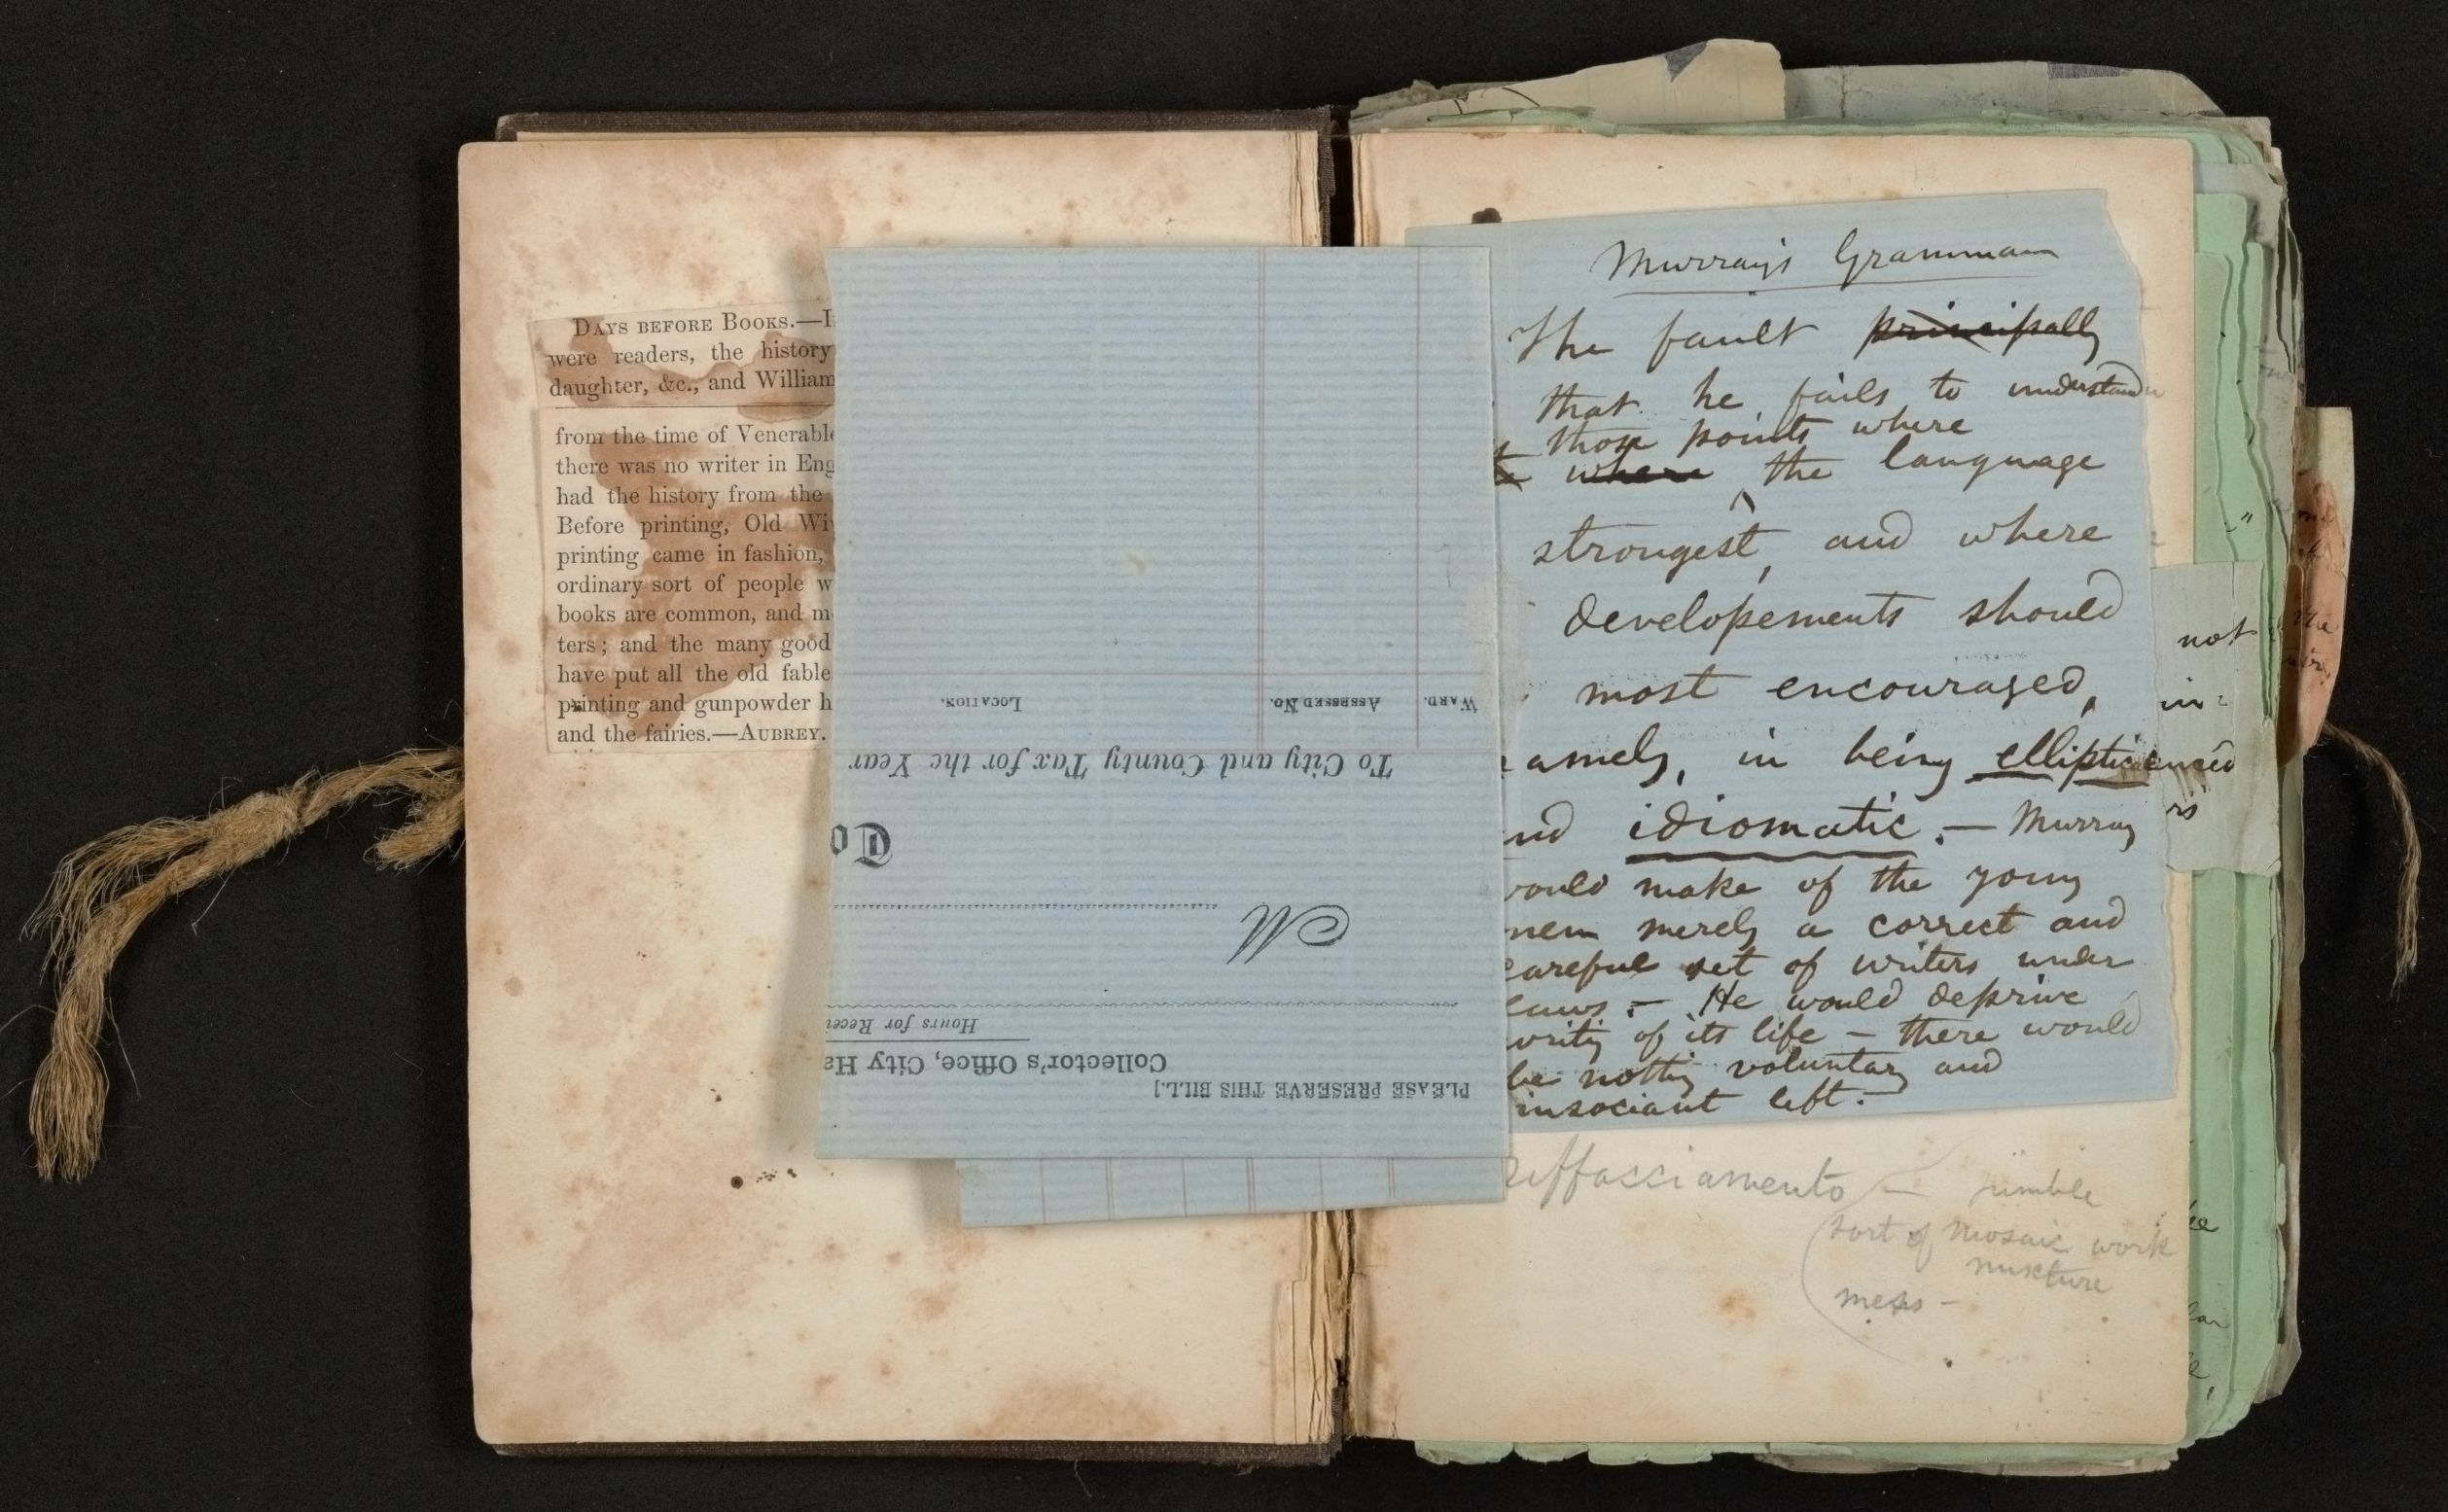 DAYS BEFORE BOOKS.—I
were readers, the history
daughter, &c., and William
from the time of Venerable
there was no writer in Eng
had the history from the
Before printing, Old Wi
printing came in fashion,
ordinary sort of people w
books are common, and m
ters; and the many good
have put all the old fable
printing and gunpowder h
and the fairies.—AUBREY.
PLEASE PRESERVE THIS BILL.]
Collector's Office, City Ha
Hours for Recei
M
To
To City and County Tax for the Year
WARD. ASSESSED No. LOCATION.
Murray's Grammar
The fault principally
that he fails to understand
those points where
where the language
strongest, and where
developements should
most encouraged,
amely, in being elliptic
nd idiomatic.— Murray
would make of the young
men merely a correct and
careful set of writers under
laws.— He would deprive
writing of its life — there would
be nothing voluntary and
insociant left.—
not
in-
riffacciamento — jumble
sort of mosaic work
mixture
mess —